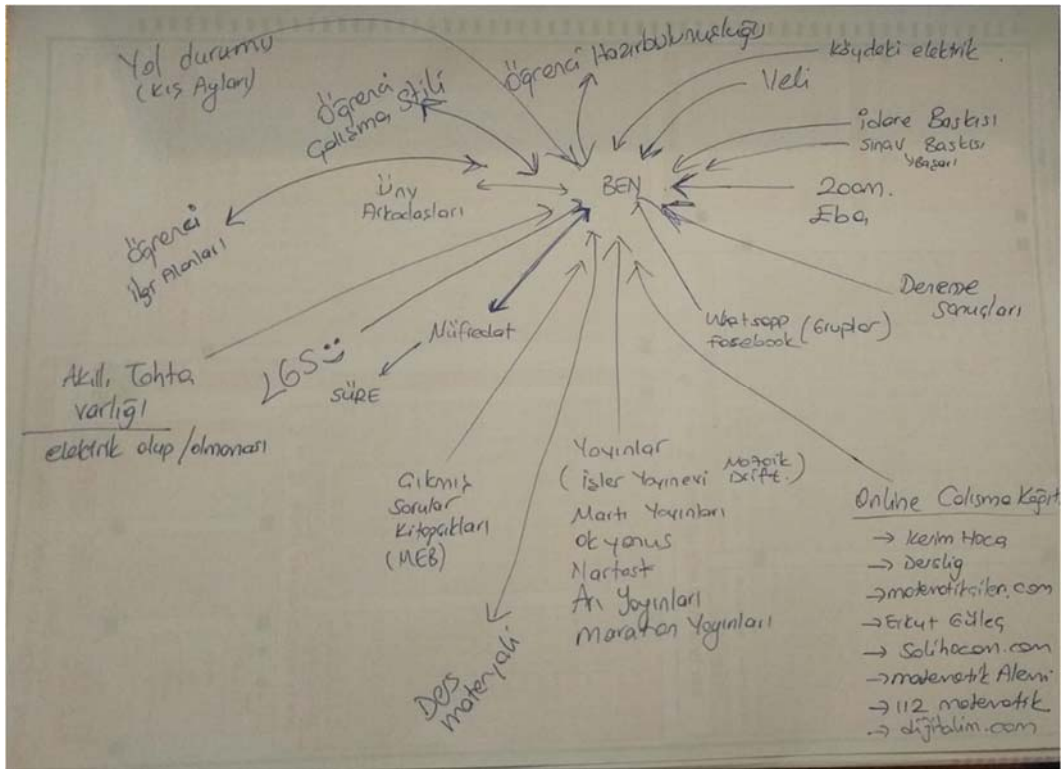 Yol durumu
(Kış Ayları)
Öğrenci
Çalışma Stili
Öğrenci Hazırbulunuşluğu
Köydeki elektrik
Veli
İdare Baskısı
Sınav Baskısı
Başarı
Zoom.
Eba
Üny
Arkadaşları
BEN
Öğrenci
ilgi Alanları
Deneme
Sonuçları
Whatsapp
facebook (Gruplar)
Müfredat
LGS
SÜRE
Akıllı Tahta
varlığı
elektrik olup/olmaması
Çıkmış
Sorular
Kitapçıkları
(MEB)
Yayınlar
(işler Yayınevi Mozaik Drift.)
Martı Yayınları
Okyanus
Nartest
Arı Yayınları
Maraton Yayınları
Ders
materyali
Online Calısma Kağıt
→ Kerim Hoca
→ Derslig
→ matematikciler.com
→ Erkut Güleç
→ Salihocam.com
→ matematik Alemi
→ 112 matematik
→ dijitalim.com